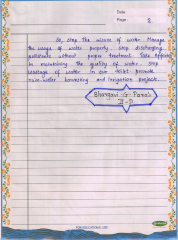 Date
Page: 2
So, stop the misuse of water. Manage
the usage of water properly. Stop discharging
pollutants without proper treatment. Take
in maintaining the quality of water. Stop
leakage of water in our toilet promote
rain-water harvesting and irrigation projects.
Bhargavi G. Parab